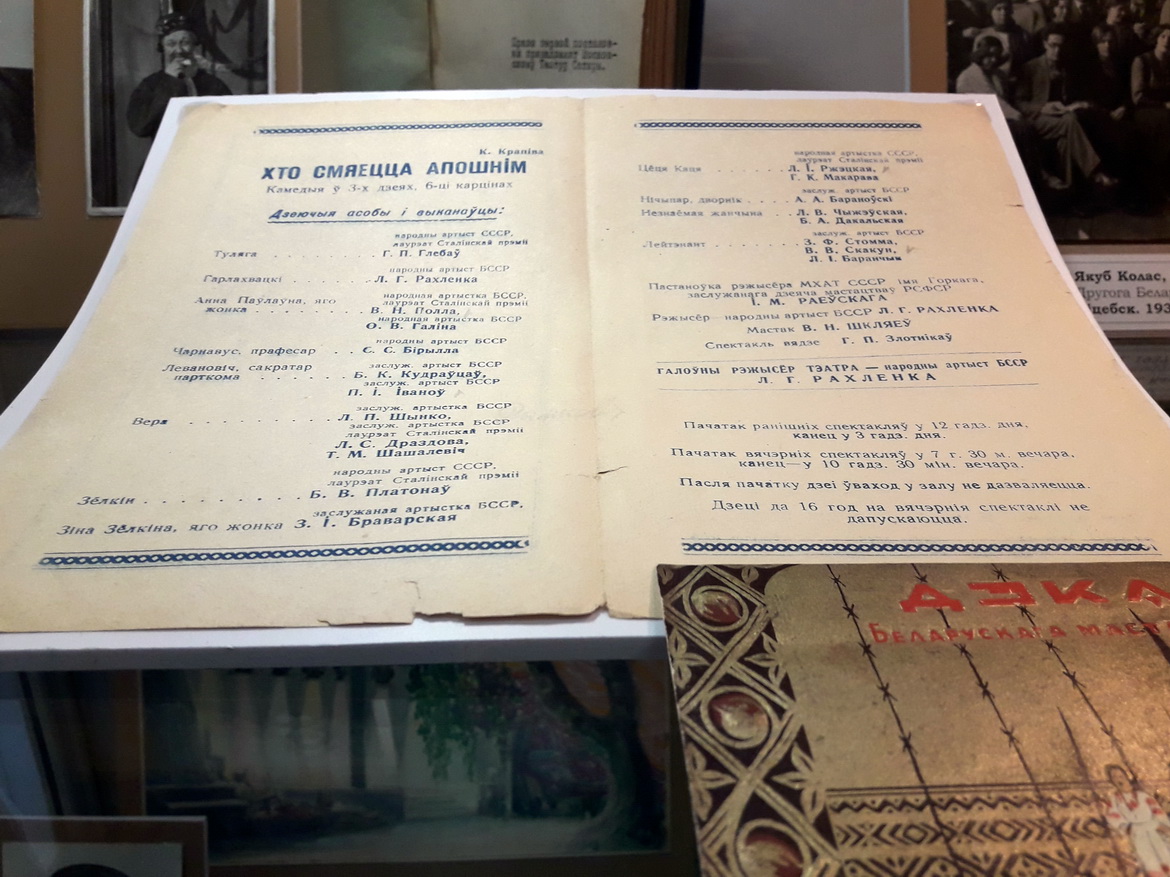 К. Крапіва
ХТО СМЯЕЦЦА АПОШНІМ
Камедыя ў 3-х дзеях, 6-ці карцінах
Дзеючыя асобы і выканаўцы:
народны артыст СССР,
лаурэат Сталінскай прэміі
Туляга . . . . . . . . Г. П. Глебаў
народны артыст БССР
Гарлахвацкі . . . . . . Л. Г. Рахленка
Анна Паўлаўна, яго народная артыстка БССР,
лаурэат Сталінскай прэміі
жонка . . . . . . . . В. Н. Полла,
народная артыстка БССР
О. В. Галіна
народны артыст БССР
Чарнавус, прафесар . . С. С. Бірылла
Левановіч, сакратар заслуж. артыст БССР
парткома . . . . . . . Б. К. Кудраўцаў,
заслуж. артыст БССР
П. І. Іваноў
заслуж. артыстка БССР
Вера . . . . . . . . . Л. П. Шынко,
заслуж. артыстка БССР
лаурэат Сталінскай прэміі
Л. С. Драздова,
Т. М. Шашалевіч
народны артыст СССР,
лаурэат Сталінскай прэміі
Зёлкін . . . . . . . . . Б. В. Платонаў
заслужаная артыстка БССР,
Зіна Зёлкіна, яго жонка З. І. Браварская
народная артыстка СССР,
лаурэат Сталінскай прэміі
Цёця Каця . . . . . . Л. І. Ржэцкая,
Г. К. Макарава
заслуж. артыст БССР
Нічыпар, дворнік . . . А. А. Бараноўскі
Незнаёмая жанчына . . Л. В. Чыжэўская,
Б. А. Дакальская
заслуж. артыст БССР
Лейтэнант . . . . . . . З. Ф. Стомма,
В. В. Скакун,
Л. І. Баранчык
Пастаноўка рэжысёра МХАТ СССР імя Горкага,
заслужанага дзеяча мастацтваў РСФСР
І. М. РАЕЎСКАГА
Рэжысёр народны артыст БССР Л. Г. РАХЛЕНКА
Мастак В. Н. ШКЛЯЕЎ
Спектакль вядзе Г. П. Злотнікаў
ГАЛОЎНЫ РЭЖЫСЁР ТЭАТРА — народны артыст БССР
Л. Г. РАХЛЕНКА
Пачатак ранішніх спектакляў у 12 гадз. дня,
канец у 3 гадз. дня.
Пачатак вячэрніх спектакляў у 7 г. 30 м. вечара,
канец — у 10 гадз. 30 мін. вечара.
Пасля пачатку дзеі ўваход у залу не дазваляецца.
Дзеці да 16 год на вячэрнія спектаклі не
дапускаюцца.
Якуб Колас,
Другога Бела
ДЭКА
Беларускага маст